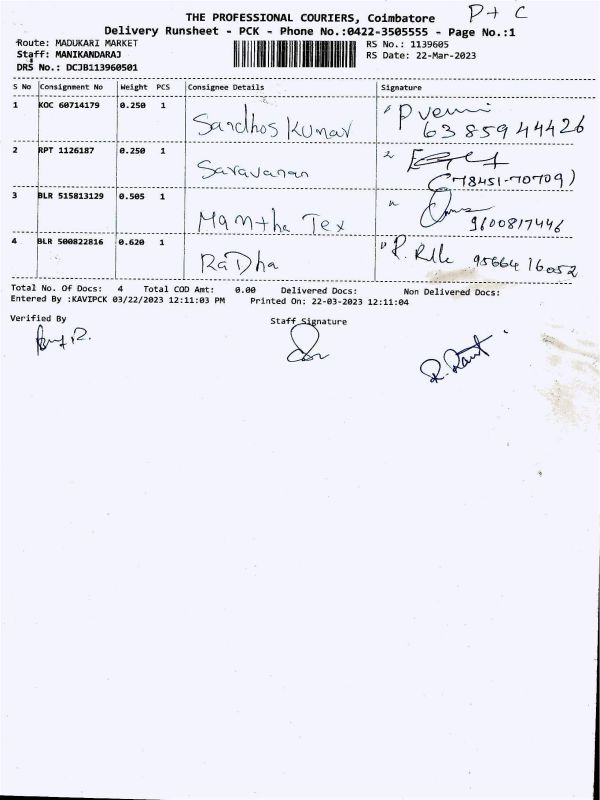 P + C
THE PROFESSIONAL COURIERS, Coimbatore
Delivery Runsheet - PCK - Phone No.:0422-3505555 - Page No.:1
Route: MADUKARI MARKET RS No.: 1139605
Staff: MANIKANDARAJ RS Date: 22-Mar-2023
DRS No.: DCJB113960501
S No Consignment No Weight PCS Consignee Details Signature
1 KOC 60714179 0.250 1 Sandhos Kumar
6385944426
2 RPT 1126187 0.250 1 Saravanan
(78451-70709)
3 BLR 515813129 0.505 1 Mamtha Tex
9600817446
4 BLR 500822816 0.620 1 RaDha 9566416052
Total No. Of Docs: 4 Total COD Amt: 0.00 Delivered Docs: Non Delivered Docs:
Entered By :KAVIPCK 03/22/2023 12:11:03 PM Printed On: 22-03-2023 12:11:04
Verified By Staff Signature